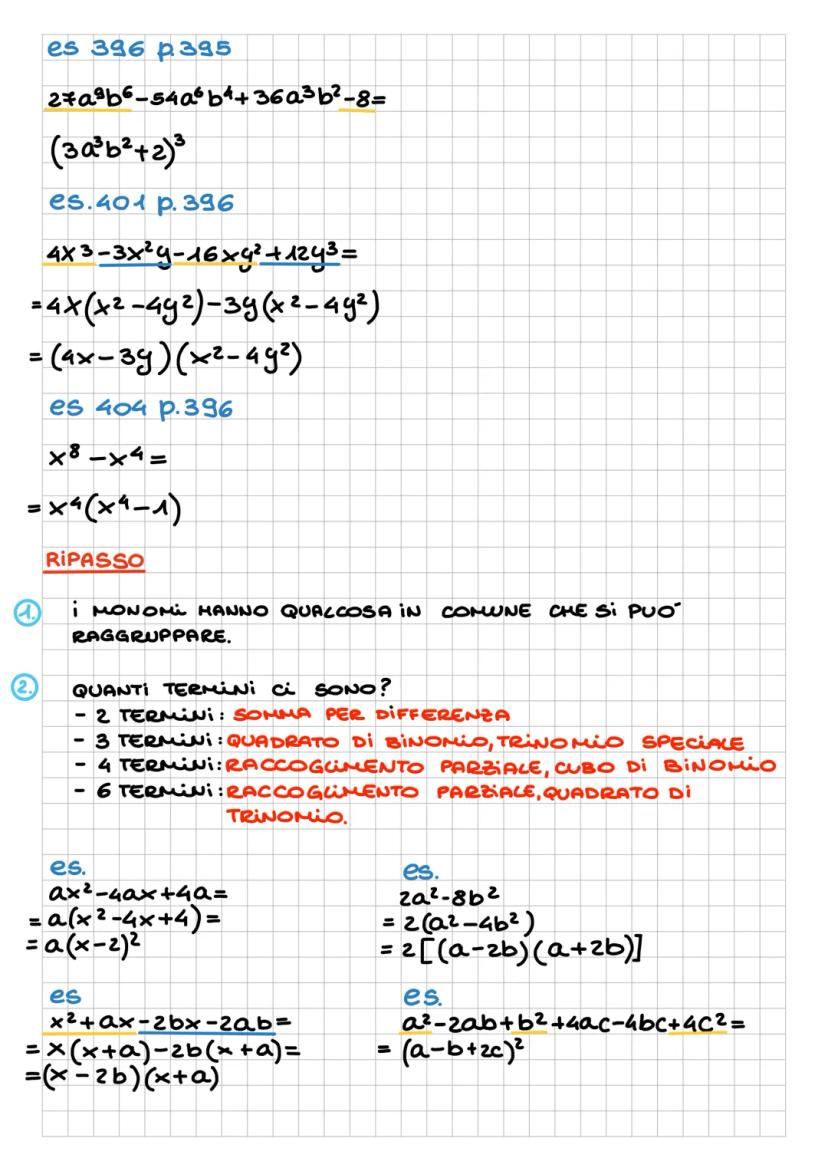 es 396 p.395
27a⁹b⁶-54a⁶b⁴+36a³b²-8=
(3a³b²+2)³
es.401 p.396
4x³-3x²y-16xy²+12y³=
=4x(x²-4y²)-3y(x²-4y²)
=(4x-3y)(x²-4y²)
es 404 p.396
x⁸-x⁴=
=x⁴(x⁴-1)
RIPASSO
1. i MONOMI HANNO QUALCOSA IN COMUNE CHE SI PUO´
RAGGRUPPARE.
2. QUANTI TERMINI CI SONO?
- 2 TERMINI: SOMMA PER DIFFERENZA
- 3 TERMINI: QUADRATO DI BINOMIO, TRINOMIO SPECIALE
- 4 TERMINI: RACCOGLIMENTO PARZIALE, CUBO DI BINOMIO
- 6 TERMINI: RACCOGLIMENTO PARZIALE, QUADRATO DI
TRINOMIO.
es.
ax²-4ax+4a=
=a(x²-4x+4)=
=a(x-2)²
es.
2a²-8b²
=2(a²-4b²)
=2[(a-2b)(a+2b)]
es
x²+ax-2bx-2ab=
=x(x+a)-2b(x+a)=
=(x-2b)(x+a)
es.
a²-2ab+b²+4ac-4bc+4c²=
=(a-b+2c)²